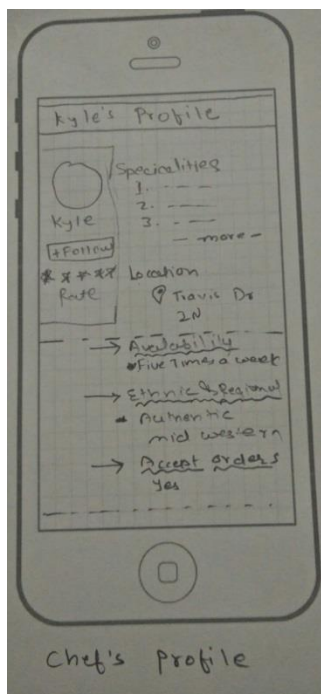 Kyle's Profile
Specialities
1.
2.
3.
- more -
Kyle
+Follow
Rate
Location
Travis Dr
2N
Availability
Five Times a week
Ethnic & Regional
Authentic
mid western
Accept orders
Yes
Chef's Profile